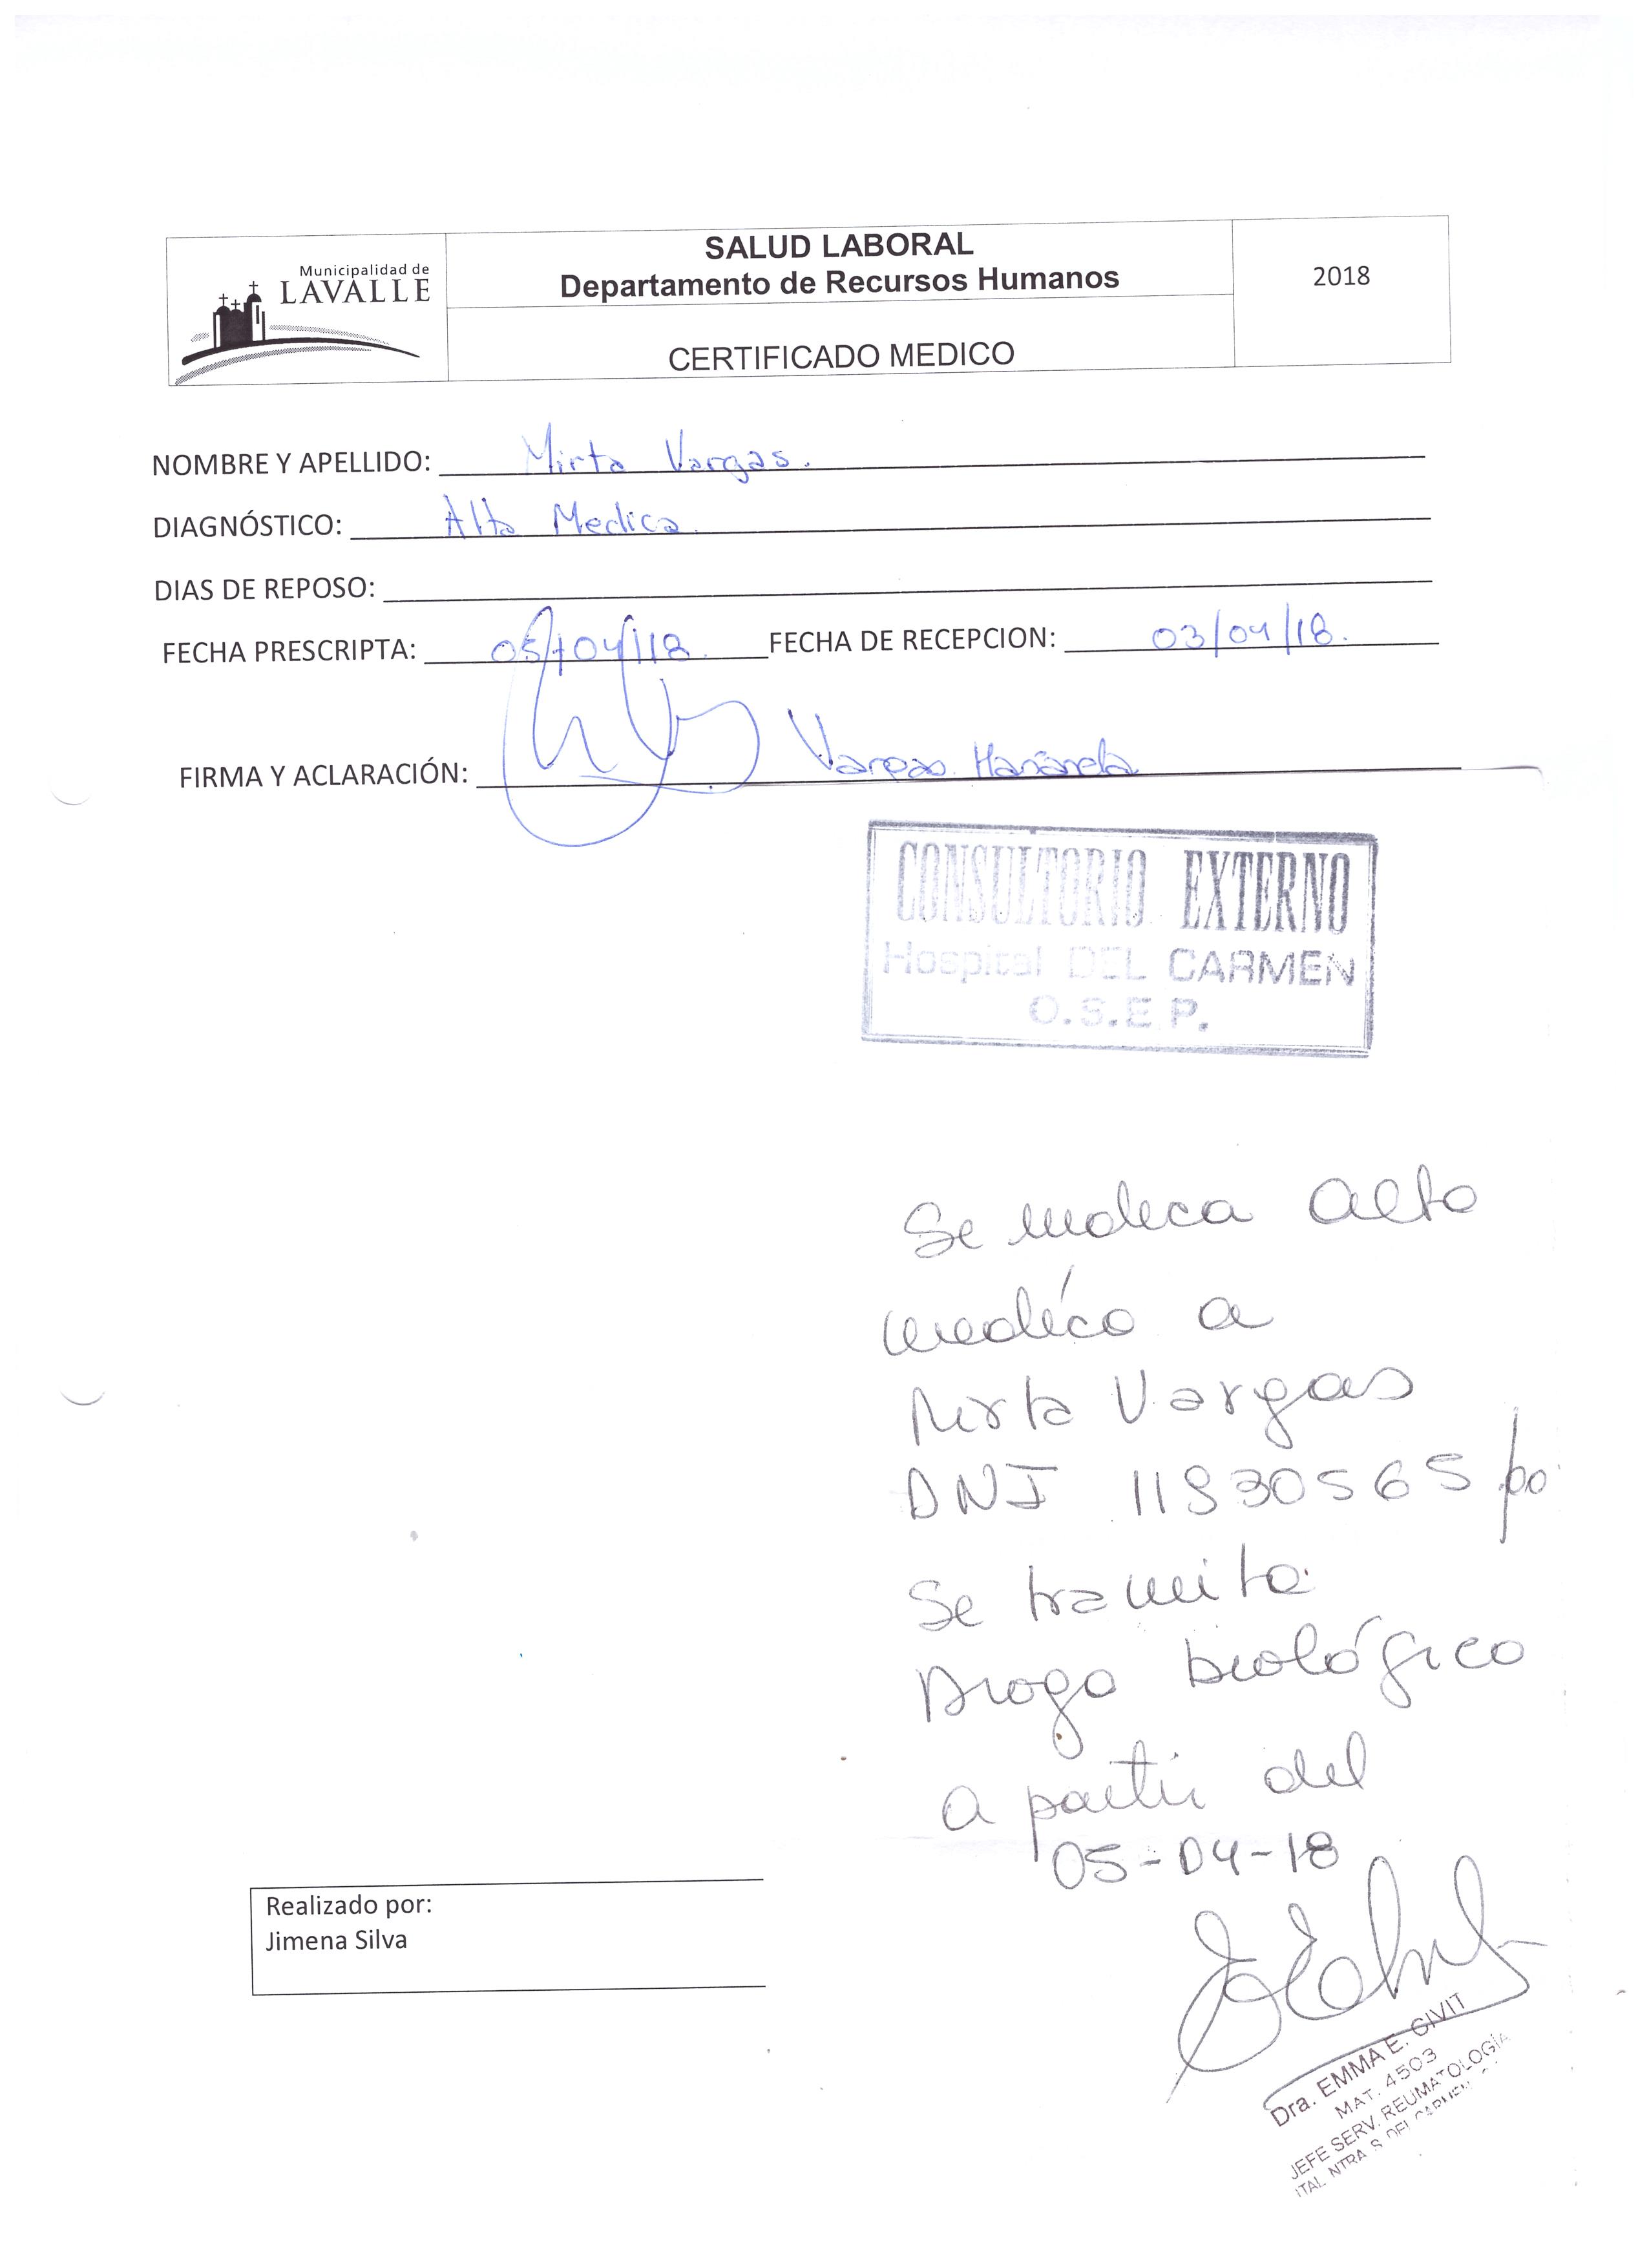 Municipalidad de
LAVALLE
SALUD LABORAL
Departamento de Recursos Humanos
CERTIFICADO MEDICO
2018
NOMBRE Y APELLIDO: Mirta Vargas.
DIAGNÓSTICO: Alta Medica.
DIAS DE REPOSO:
FECHA PRESCRIPTA: 05/04/18. FECHA DE RECEPCION: 03/04/18.
FIRMA Y ACLARACIÓN: Vargas
CONSULTORIO EXTERNO
Hospital DEL CARMEN
O.S.E.P.
Se indica alta
medico a
Mirta Vargas
DNI 11830565
Se tramita
Droga biológico
a partir del
05-04-18
Realizado por:
Jimena Silva
Dra. EMMA E. CIVIT
MAT. 4503
JEFE SERV. REUMATOLOGÍA
ITAL NTRA S DEL CARMEN